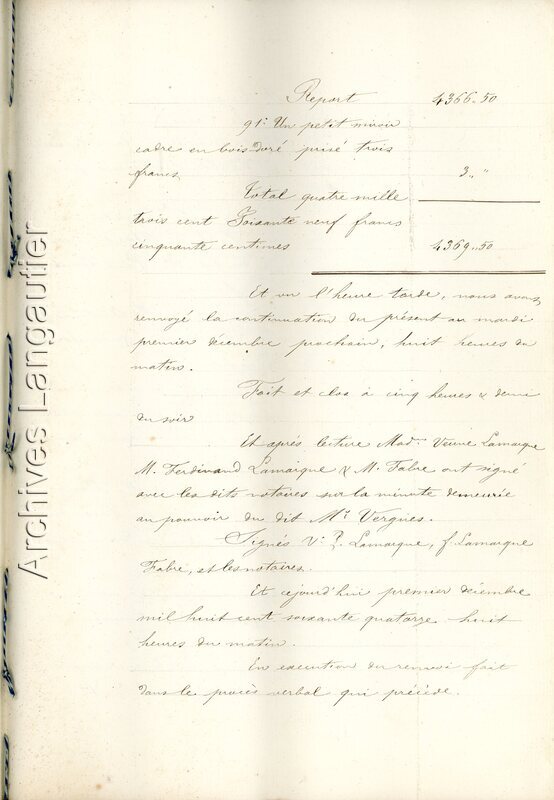 Report 4366.50
91: Un petit miroir
cadre en bois doré prisé trois
francs 3,, "
Total quatre mille
trois cent Soixante neuf francs
cinquante centimes 4369..50
Et vu l'heure tarde, nous avons
renvoyé la continuation du présent au mardi
premier décembre prochain, huit heures du
matin.
Fait et clos à cinq heures & demi
du soir
Et après lecture Made Veuve Lamarque
M. Ferdinand Lamarque & M. Fabre ont signé
avec les dits notaires sur la minute demeurée
au pouvoir du dit Me Vergnes.
Signés Ve Lamarque, f. Lamarque
Fabre, et les notaires.
Et cejourd'hui premier décembre
mil huit cent soixante quatorze huit
heures du matin.
En execution du renvoi fait
dans le procès verbal qui précède.
Archives Langautier